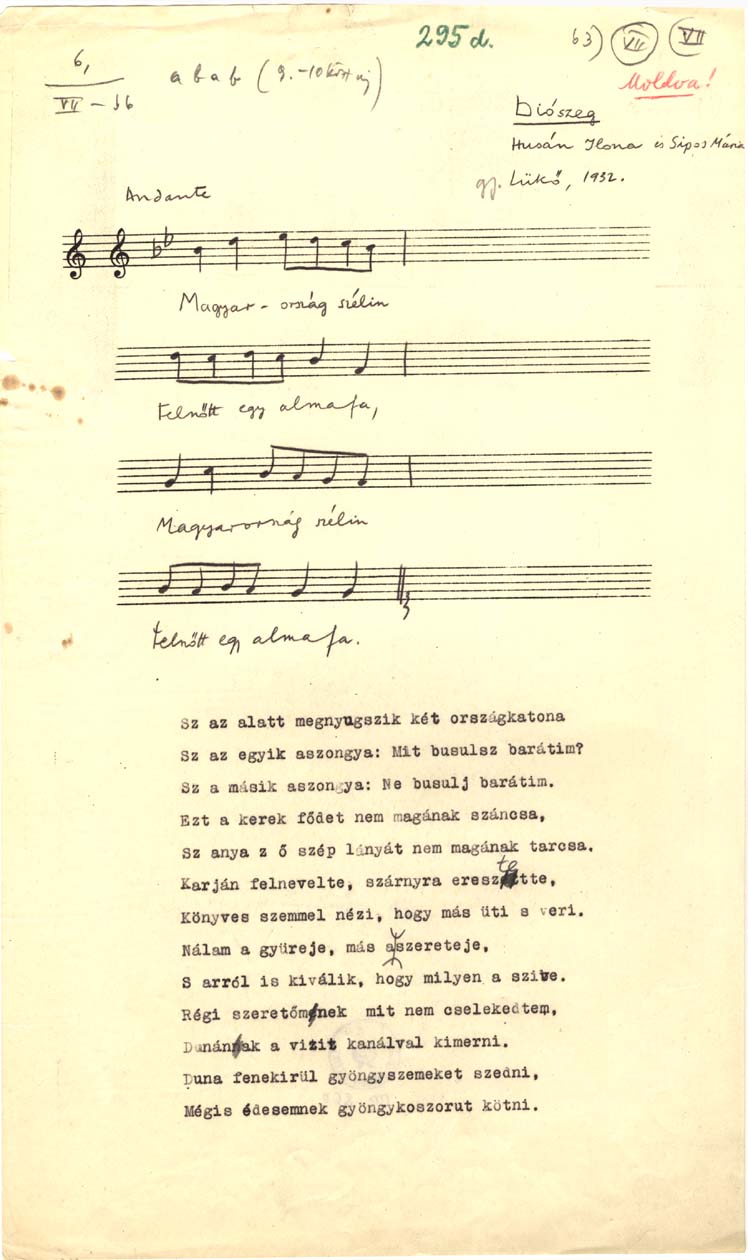 295 d.
63) VII VII
6,
VII - 36
a b a b
Moldva!
Diószeg
Husán Ilona és Sipos Mária
gj. Lükő, 1932.
Andante
Magyar - ország szélin
Felnőtt egy almafa,
Magyarország szélin
Felnőtt egy almafa.
Sz az alatt megnyugszik két országkatona
Sz az egyik aszongya: Mit busulsz barátim?
Sz a másik aszongya: Ne busulj barátim.
Ezt a kerek fődet nem magának száncsa,
Sz anya z ő szép lányát nem magának tarcsa.
Karján felnevelte, szárnyra eresztette,
Könyves szemmel nézi, hogy más üti s veri.
Nálam a gyüreje, más a szereteje,
S arról is kiválik, hogy milyen a szive.
Régi szeretőmnek mit nem cselekedtem,
Dunának a vizit kanálval kimerni.
Duna fenekirül gyöngyszemeket szedni,
Mégis édesemnek gyöngykoszorut kötni.